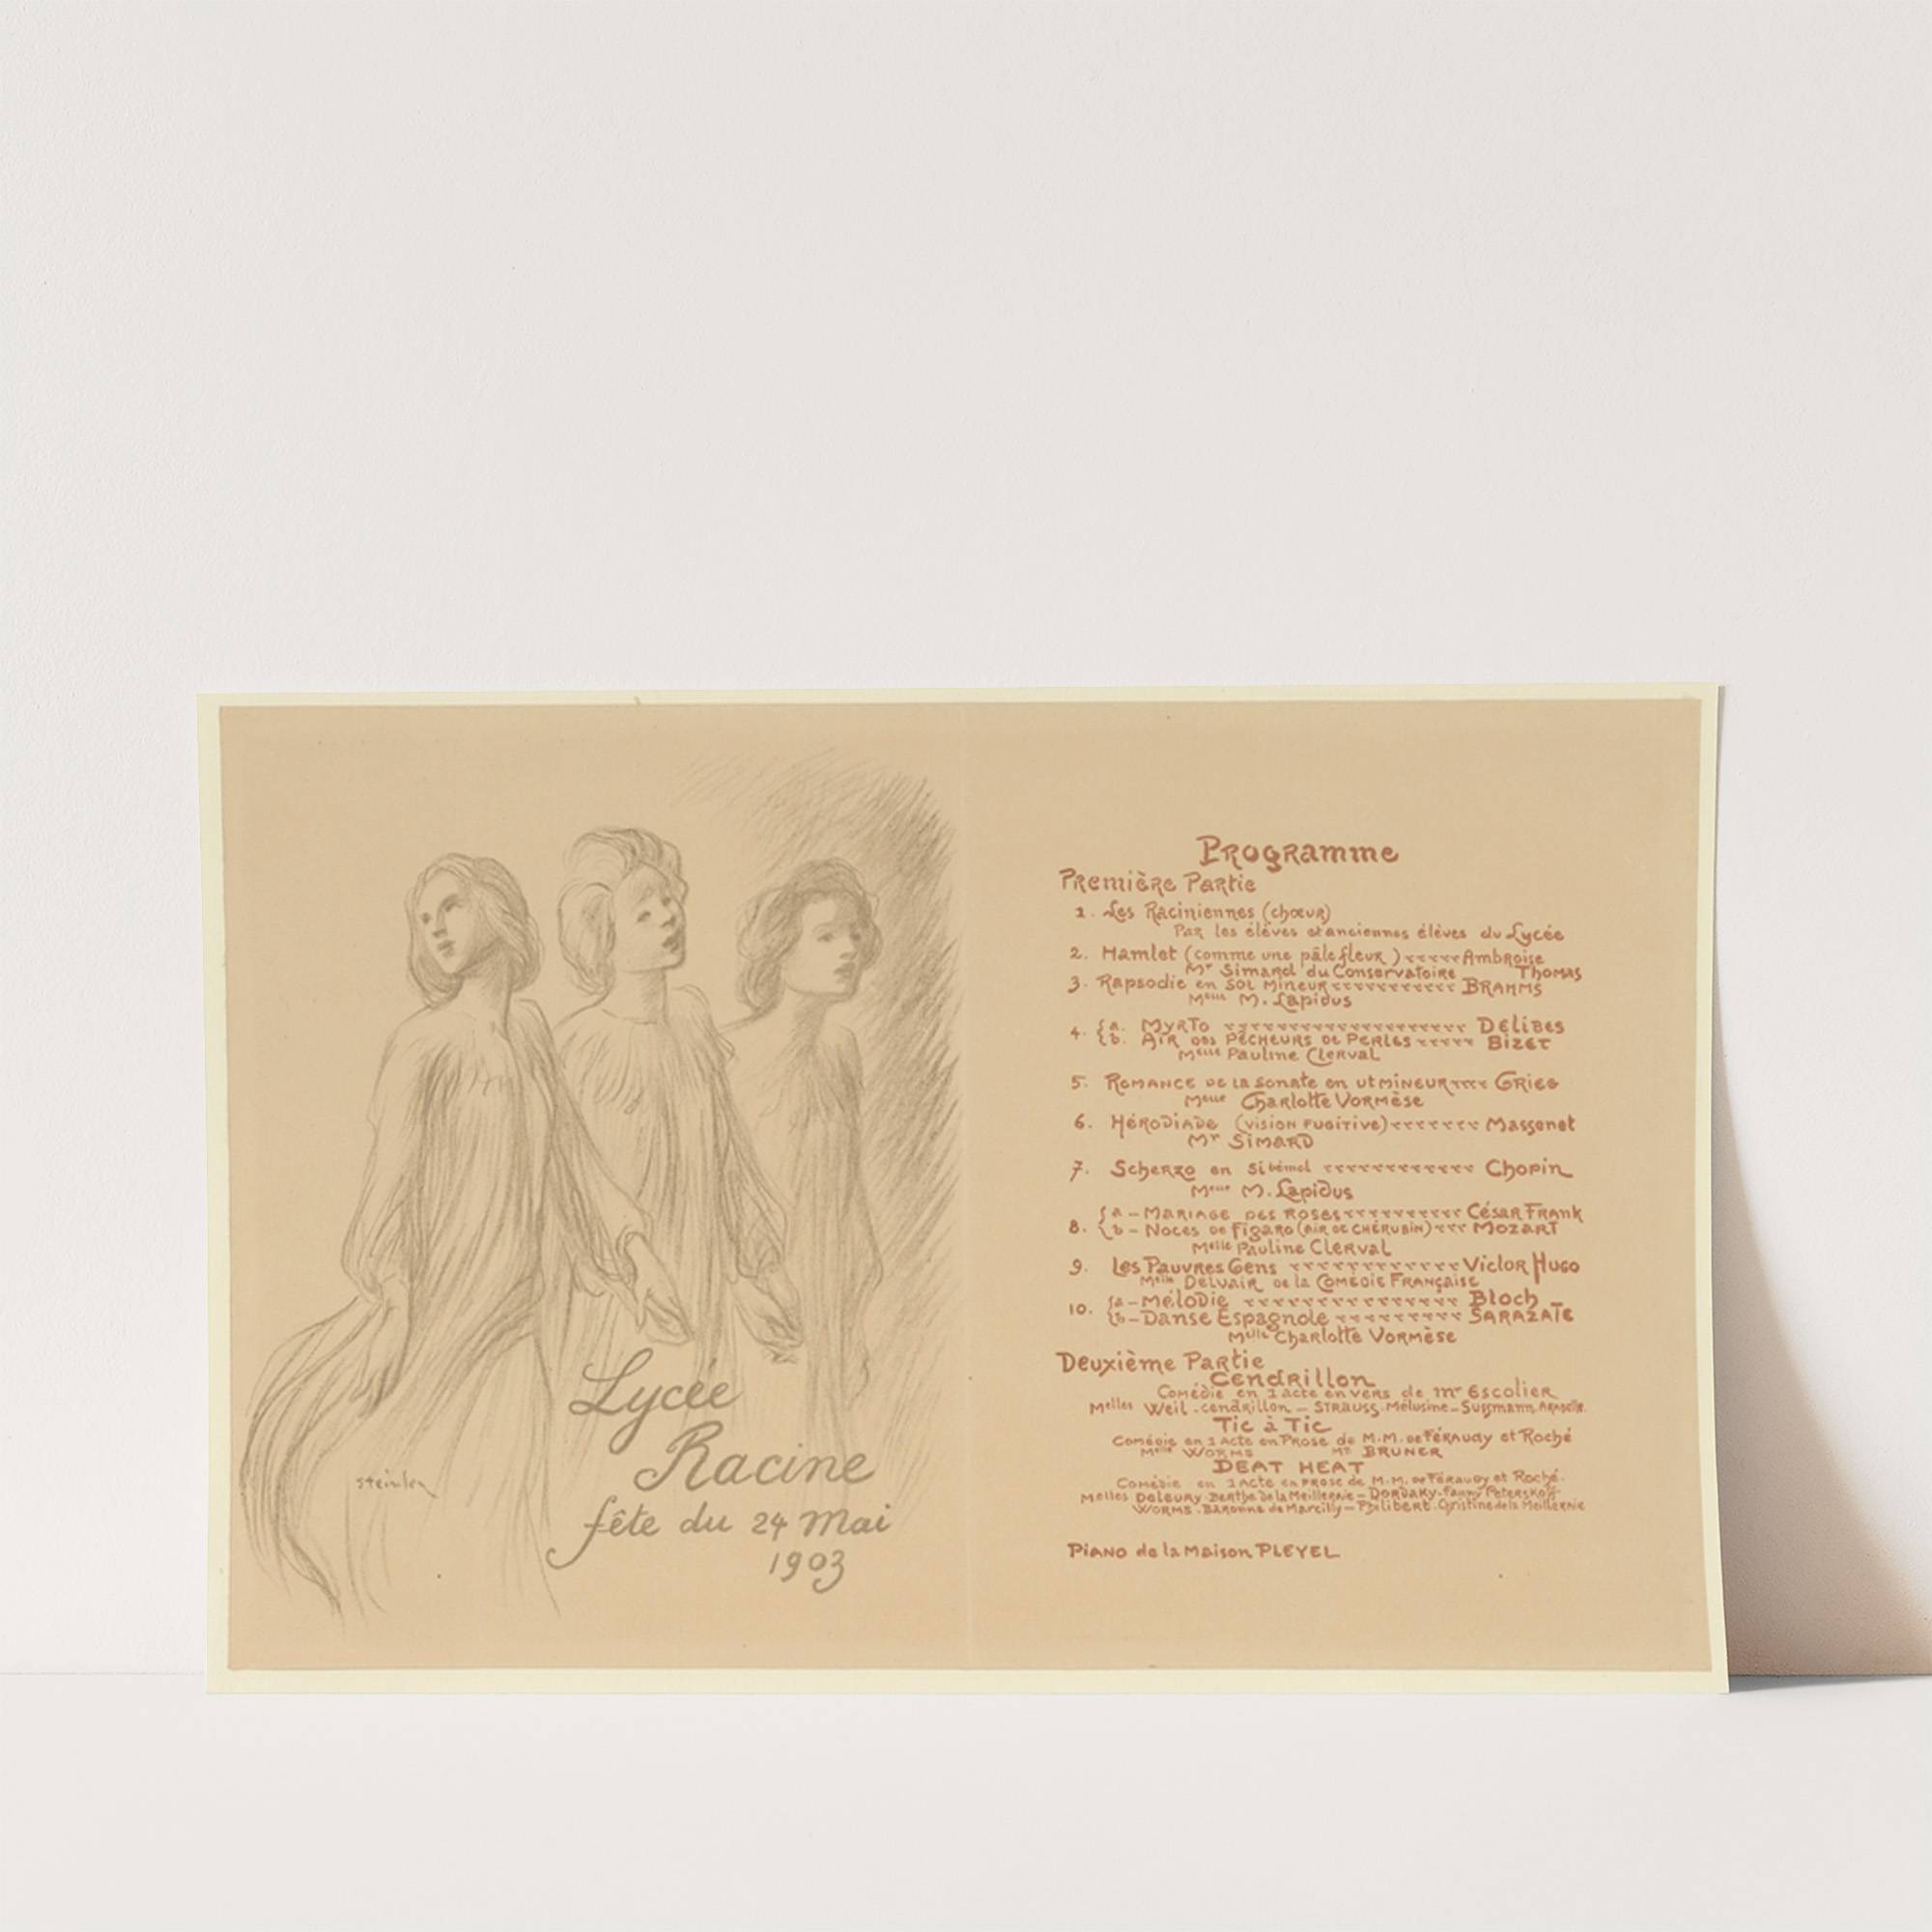 Lycée
Racine
fête du 24 Mai
1903
Steinlen
Programme
Première Partie
1. Les Raciniennes (chœur)
Par les élèves et anciennes élèves du Lycée
2. Hamlet (comme une pâle fleur) Ambroise Thomas
Mr Simard du Conservatoire
3. Rapsodie en sol mineur BRAHMS
Melle M. Lapidus
4. { a. Myrto DELIBES
{ b. Air des Pêcheurs de Perles BIZET
Melle Pauline Clerval
5. Romance de la sonate en ut mineur GRIEG
Melle Charlotte Vormèse
6. Hérodiade (vision fugitive) Massenet
Mr Simard
7. Scherzo en si bémol Chopin
Melle M. Lapidus
8. { a - Mariage des Roses César Frank
{ b - Noces de Figaro (air de Chérubin) MOZART
Melle Pauline Clerval
9. Les Pauvres Gens Victor Hugo
Melle Delvair de la Comédie Française
10. { a - Mélodie Bloch
{ b - Danse Espagnole SARAZATE
Melle Charlotte Vormèse
Deuxième Partie
Cendrillon
Comédie en 1 acte en vers de Mr Escolier
Melles Weil - Cendrillon - Strauss. Mélusine - Sussmann.
Tic à Tic
Comédie en 1 Acte en Prose de M.M. de Féraudy et Roché
Melle WORMS Mr BRUNER
DEAT HEAT
Comédie en 1 Acte en prose de M.M. de Féraudy et Roché.
Melles Deleury. Berthe de la Meillernie - Dordaky. Fanny Peterskoff
WORMS. Baronne de Marcilly - Philibert. Christine de la Meillernie
Piano de la Maison PLEYEL